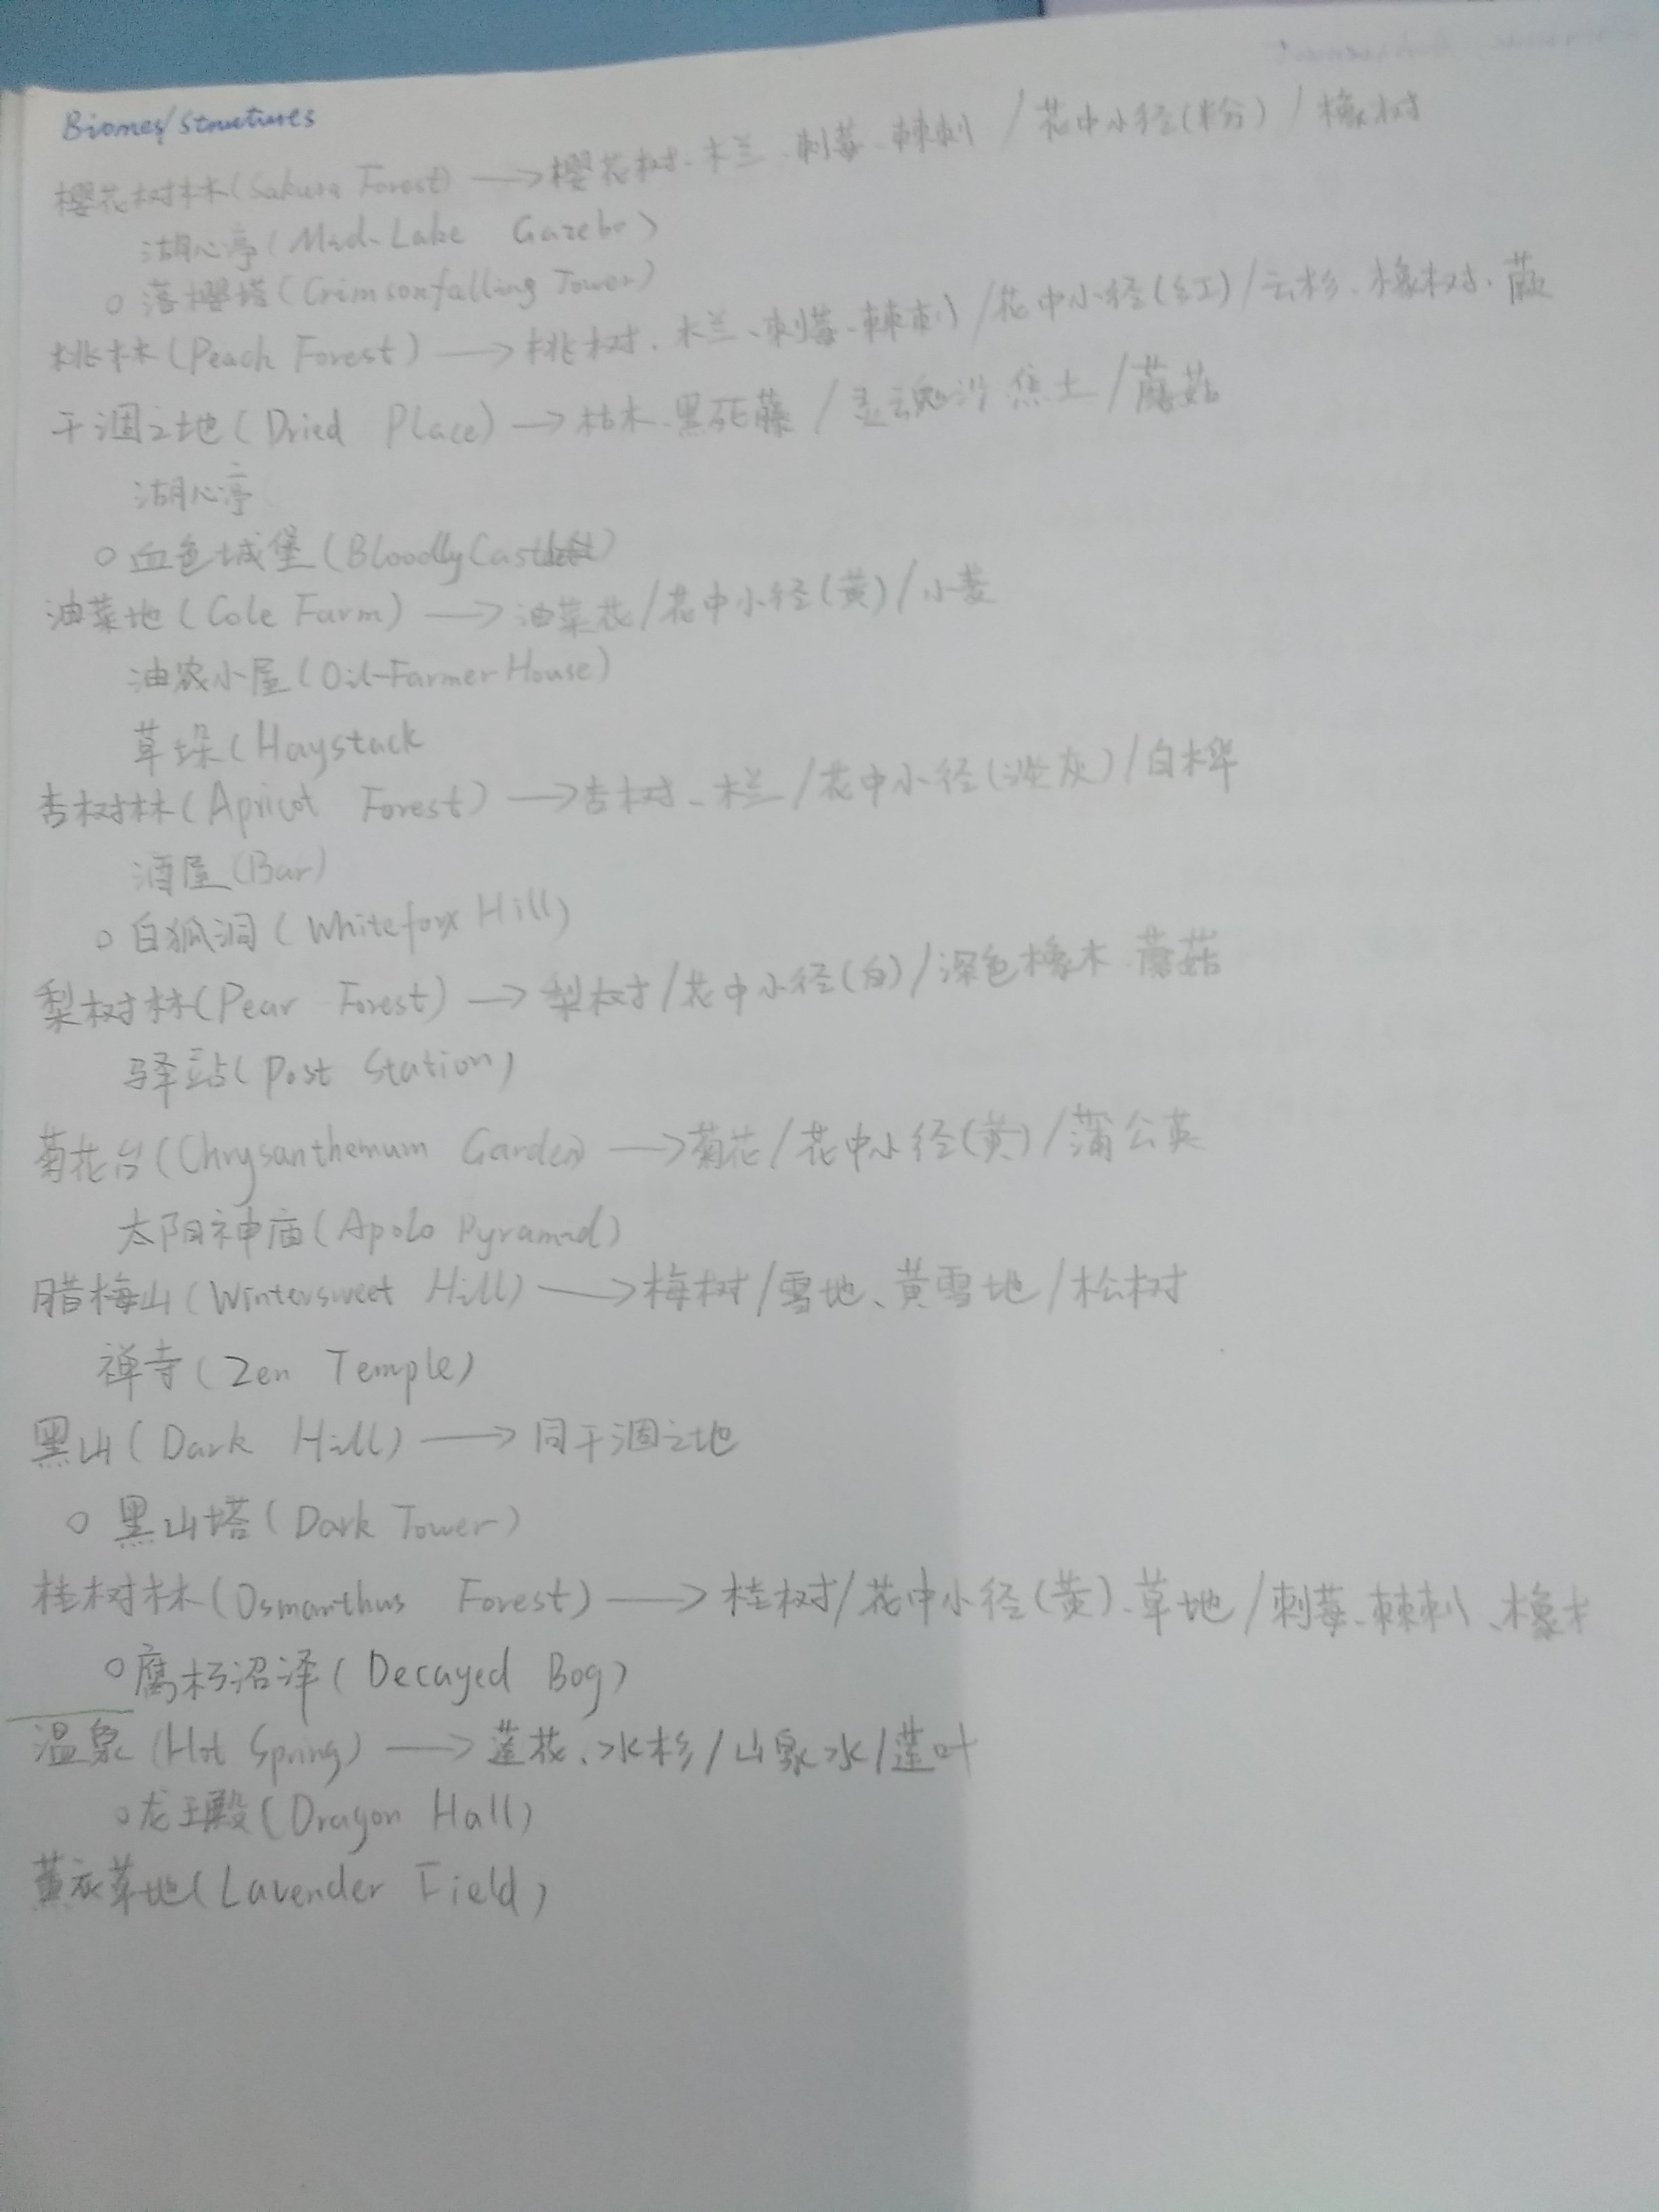 Biomes/Structures
樱花树林(Sakura Forest) → 樱花树、木兰、刺莓、棘刺/花中小径(粉)/橡树
湖心亭(Mid-Lake Gazebo)
○ 落樱塔(Crimsonfalling Tower)
桃林(Peach Forest) → 桃树、木兰、刺莓、棘刺/花中小径(红)/云杉、橡树、蕨
干涸之地(Dried Place) → 枯木、黑死藤/灵魂沙 焦土/蘑菇
湖心亭
○ 血色城堡(Bloodly
油菜地(Cole Farm) → 油菜花/花中小径(黄)/小麦
油农小屋(Oil-Farmer House)
草垛(Haystack
杏树林(Apricot Forest) → 杏树、栏/花中小径(淡灰)/白桦
酒屋(Bar)
○ 白狐洞(Whitefox Hill)
梨树林(Pear Forest) → 梨树/花中小径(白)/深色橡木、蘑菇
驿站(Post Station)
菊花台(Chrysanthemum Garden) → 菊花/花中小径(黄)/蒲公英
太阳神庙(Apolo Pyramid)
腊梅山(Wintersweet Hill) → 梅树/雪地、黄雪地/松树
禅寺(Zen Temple)
黑山(Dark Hill) → 同干涸之地
○ 黑山塔(Dark Tower)
桂树林(Osmanthus Forest) → 桂树/花中小径(黄)、草地/刺莓、棘刺、橡
○ 腐朽沼泽(Decayed Bog)
温泉(Hot Spring) → 莲花、水杉/山泉水/莲叶
○ 龙王殿(Dragon Hall)
薰衣草地(Lavender Field)